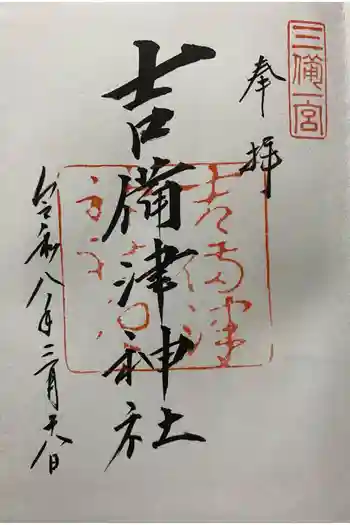 三備一宮
奉拝
吉備津神社
令和八年二月十八日
吉備津